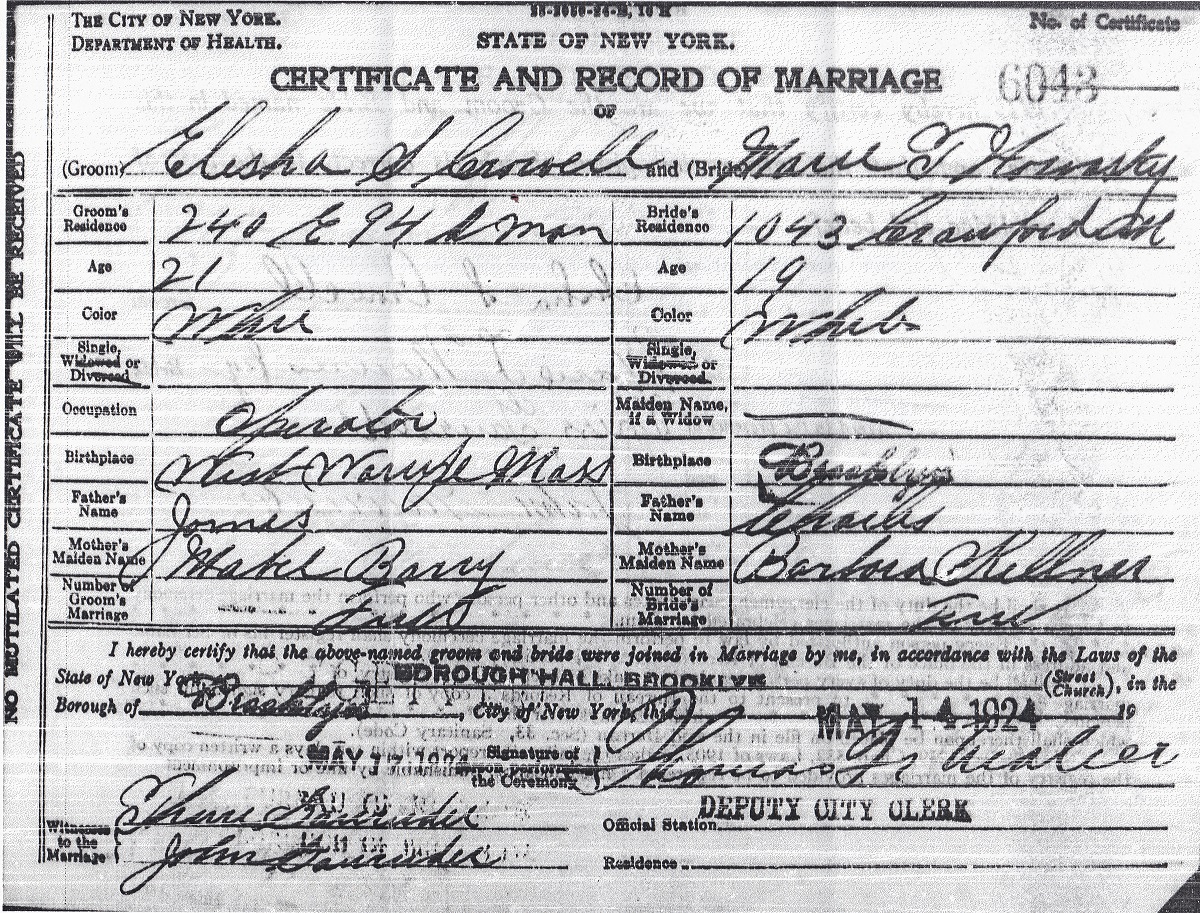 THE CITY OF NEW YORK.
DEPARTMENT OF HEALTH.
STATE OF NEW YORK.
No. of Certificate
CERTIFICATE AND RECORD OF MARRIAGE
6043
OF
(Groom) Elisha S Crowell and (Bride) Marie T
Groom's Residence 240 E 94 St Man Bride's Residence 1043 Crawford
Age 21 Age 19
Color White Color White
Single, Widowed or Divorced Single, Widowed or Divorced
Occupation Operator Maiden Name, if a Widow
Birthplace West Mass Birthplace Brooklyn
Father's Name James Father's Name Charles
Mother's Maiden Name Mabel Barry Mother's Maiden Name Barbara Kellner
Number of Groom's Marriage First Number of Bride's Marriage First
I hereby certify that the above-named groom and bride were joined in Marriage by me, in accordance with the Laws of the
State of New York BOROUGH HALL, BROOKLYN (Street Church), in the
Borough of Brooklyn, City of New York, this MAY 14 1924 19
MAY 17 1924 Signature of person performing the Ceremony Thomas
DEPUTY CITY CLERK
Official Station
Witnesses to the Marriage
John
Residence
NO MUTILATED CERTIFICATE WILL BE RECEIVED